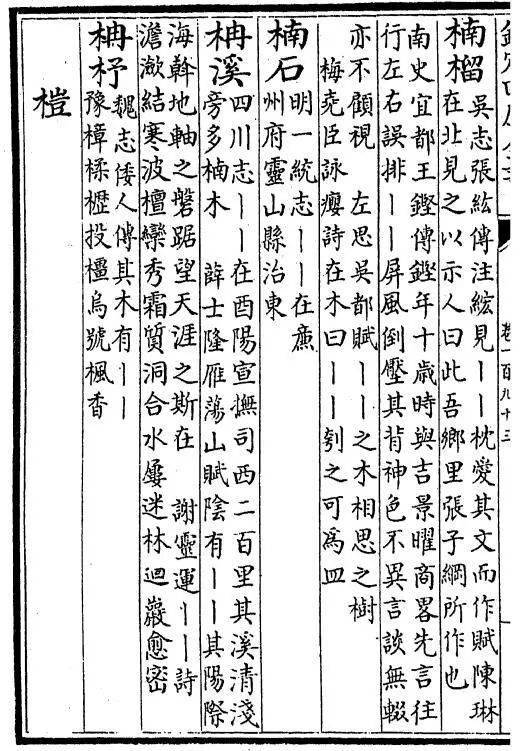 卷一百九十三
楠榴 吳志張紘傳注紘見丨丨枕愛其文而作賦陳琳
在北見之以示人曰此吾鄉里張子綱所作也
南史宜都王鏗傳鏗年十歲時與吉景曜商畧先言往
行左右誤排丨丨屏風倒壓其背神色不異言談無輟
亦不顧視 左思吳都賦丨丨之木相思之樹
梅堯臣詠癭詩在木曰丨丨刳之可為皿
楠石 明一統志丨丨在廉
州府靈山縣治東
柟溪 四川志丨丨在酉陽宣撫司西二百里其溪清淺
旁多楠木 薛士隆雁蕩山賦陰有丨丨其陽際
海斡地軸之磐踞望天涯之斯在 謝靈運丨丨詩
澹瀲結寒波檀欒秀霜質洞合水屢迷林迴巖愈密
柟杼 魏志倭人傳其木有丨丨
豫樟楺櫪投橿烏號楓香
榿